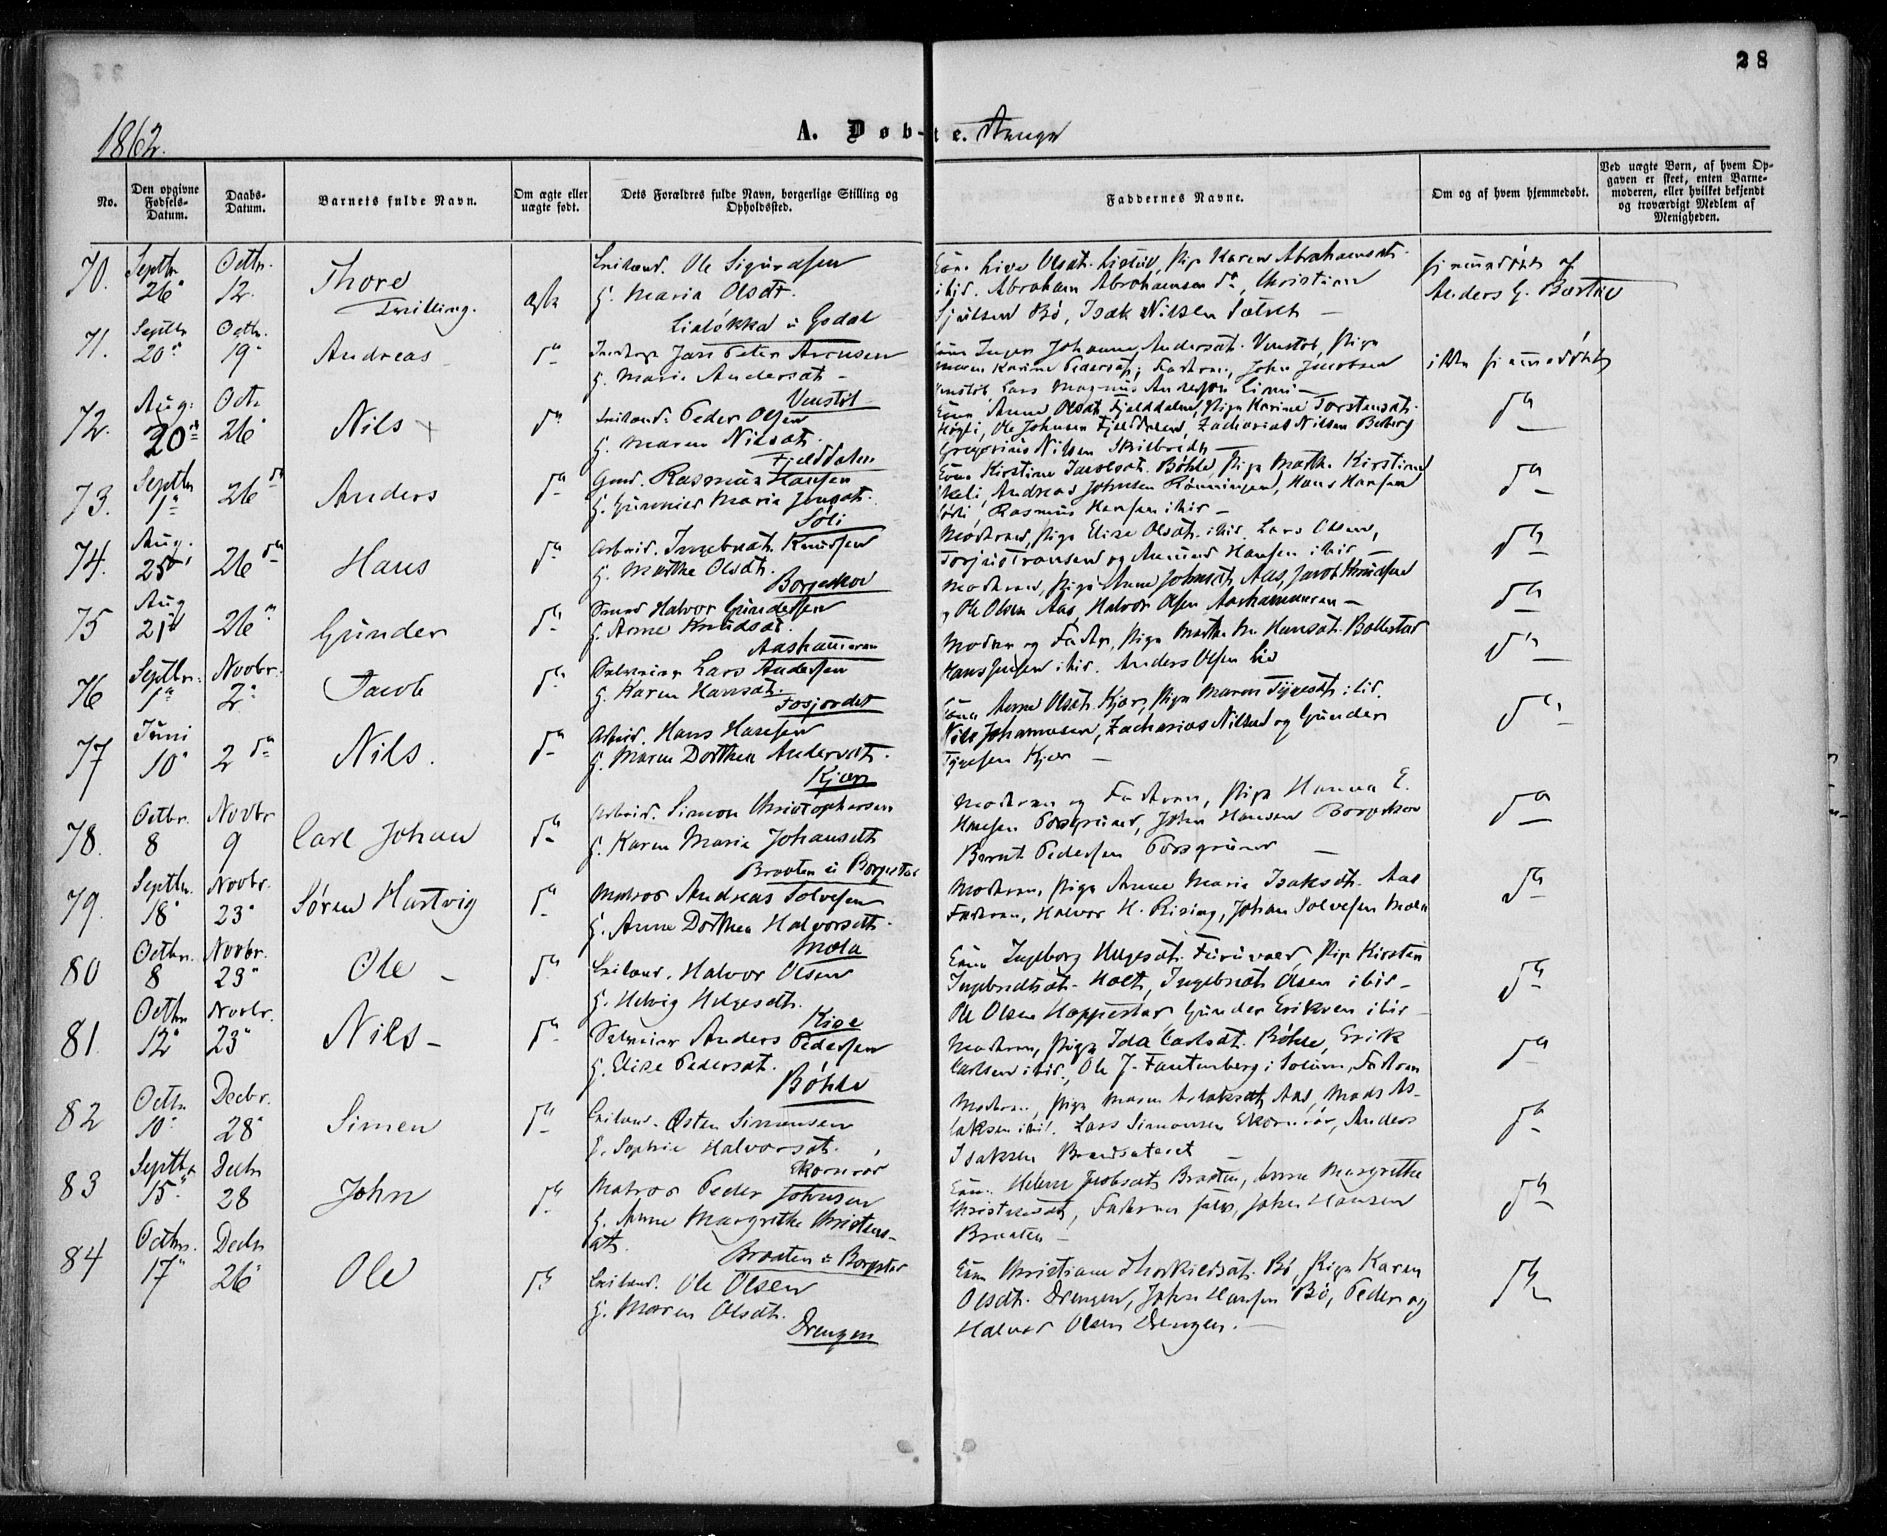 28
1862.
A. Døb-te. Drenge
No.
Den opgivne Fødsels-Datum.
Daabs-Datum.
Barnets fulde Navn.
Om ægte eller uægte født.
Dets Forældres fulde Navn, borgerlige Stilling og Opholdssted.
Faddernes Navne.
Om og af hvem hjemmedøbt.
Ved uægte Børn, af hvem Opgaven er skeet, enten Barnemoderen, eller hvilket bekjendt og troværdigt Medlem af Menigheden.
70. Septbr 26 Octbr. 12. Thore Tvilling. ægte
Ole Sigurdsen
G. Maria Olsdt.
Olsdt. Karen Abrahamsdt.
ibid. Abraham Abrahamsen do, Christian
Bø, Isak Nilsen
hjemmedøbt af
Anders G.
71. Septbr 20 Octbr. 19 Andreas do
Jan Peter Arensen
G. Maria Andersdt.
Venstøb
Inger Johanne Andersdt. Venstøb, Pige
Maren Karine Pedersdt, Faderen, John Jacobsen
Venstøb, Lars Magnus Andersen
ikke hjemmedøbt
72. Aug. 20 Oct. 26 Nils do
Peder Olsen
G. Maren Nilsdt.
Fjelddalen
Anne Olsdt. Fjelddalen, Pige Karine Torstensdt.
Ole Johnsen Fjelddalen, Zacharias Nilsen
Gregorius Nilsen
do
73. Septbr 1 26 do Anders do
Gmd. Rasmus Hansen
G. Gunnild Maria Jensdt.
Søli
Kirstine Bøhle, Pige Marthe Kirstine
Andreas Johnsen Rønningen, Hans Hansen
Rasmus Hansen ibid
do
74. Aug. 25 26 do Hans do
Arbeid. Ingebret Knudsen
G. Marthe Olsdt.
Borgeskov
Moderen, Pige Elise Olsdt. ibid. Lars Olsen,
og Amund Hansen ibid
do
75 Aug 21 26 do Gunder do
Halvor Gundersen
G. Anne Knudsdt.
Aashammeren
Moderen, Pige Anne Johnsdt. Aas, Jacob Knudsen
Ole Olsen Aas, Halvor Olsen Aashammeren
do
76 Septbr. 1 Novbr. 2 Jacob do
Lars Andersen
G. Karen Hansdt.
Fosjordet
Moderen og Fader, Pige Marthe M. Hansdt. Bollestad
Hans Jensen ibid. Anders Olsen Lie
do
77 Juni 10 2 do Nils. do
Arbeid. Hans Hansen
G. Maren Dorthea Andersdt.
Kjær
Anne Olsdt. Kjær, Pige Maren ibid.
Nils Johannesen, Zacharias Nilsen og Gunder
Kjær
do
78. Octbr. 8 Novbr 9 Carl Johan do
Arbeid. Simon Christophersen
G. Karen Maria Johansdt
Braaten u. Borgestad
Moderen og Faderen, Pige Hanna E.
Hansen Porsgrund, John Hansen Borgeskov
Bernt Pedersen Porsgrund
do
79. Septbr. 18 Novbr. 23 Søren Hartvig do
Matros Andreas Solvesen
G. Anne Dorthea Halvorsdt.
Mæla
Moderen, Pige Anne Maria Isaksdt. Aas
Faderen, Halvor H. Rising, Johan Solvesen Mæla
do
80 Octbr. 8 Novbr. 23 Ole do
Halvor Olsen
G. Helvig Helgesdt.
Kise
Ingeborg Helgesdt. Furuvald, Pige Kirsten
Ingebretsdt. Holt, Ingebret Olsen ibid
Ole Olsen Hoppestad Gunder Eriksen ibid
do
81. Octbr 12 Novbr. 23 Nils do
Anders Pedersen
G. Elise Pedersdt.
Bøhle
Moderen, Pige Ida Carlsdt. Bøhle, Erik
Carlsen ibid., Ole J. Fantenberg i Solum, Faderen
do
82 Octbr 10 Decbr. 28 Simen do
Østen Simonsen
G. Sophie Halvorsdt.
Ekornrød
Moderen, Pige Maren Aslaksdt Aas, Mads As-
laksen ibid. Lars Simonsen Ekornrød, Anders
Isaksen
do
83 Septbr 15 Decbr 28 John do
Matros Peder Johnsen
G. Anne Margrethe Christens-
dt.
Braaten u. Borgestad
Helene Jacobsdt. Braaten, Anne Margrethe
Christensdt, Faderen selv, John Hansen
Braaten
do
84 Octbr. 17 Decbr 26 Ole do
Ole Olsen
G. Maren Olsdt.
Drengen
Christiane Thorkildsdt. Bø, Pige Karen
Olsdt. Drengen, John Hansen Bø, Peder og
Halvor Olsen Drengen.
do